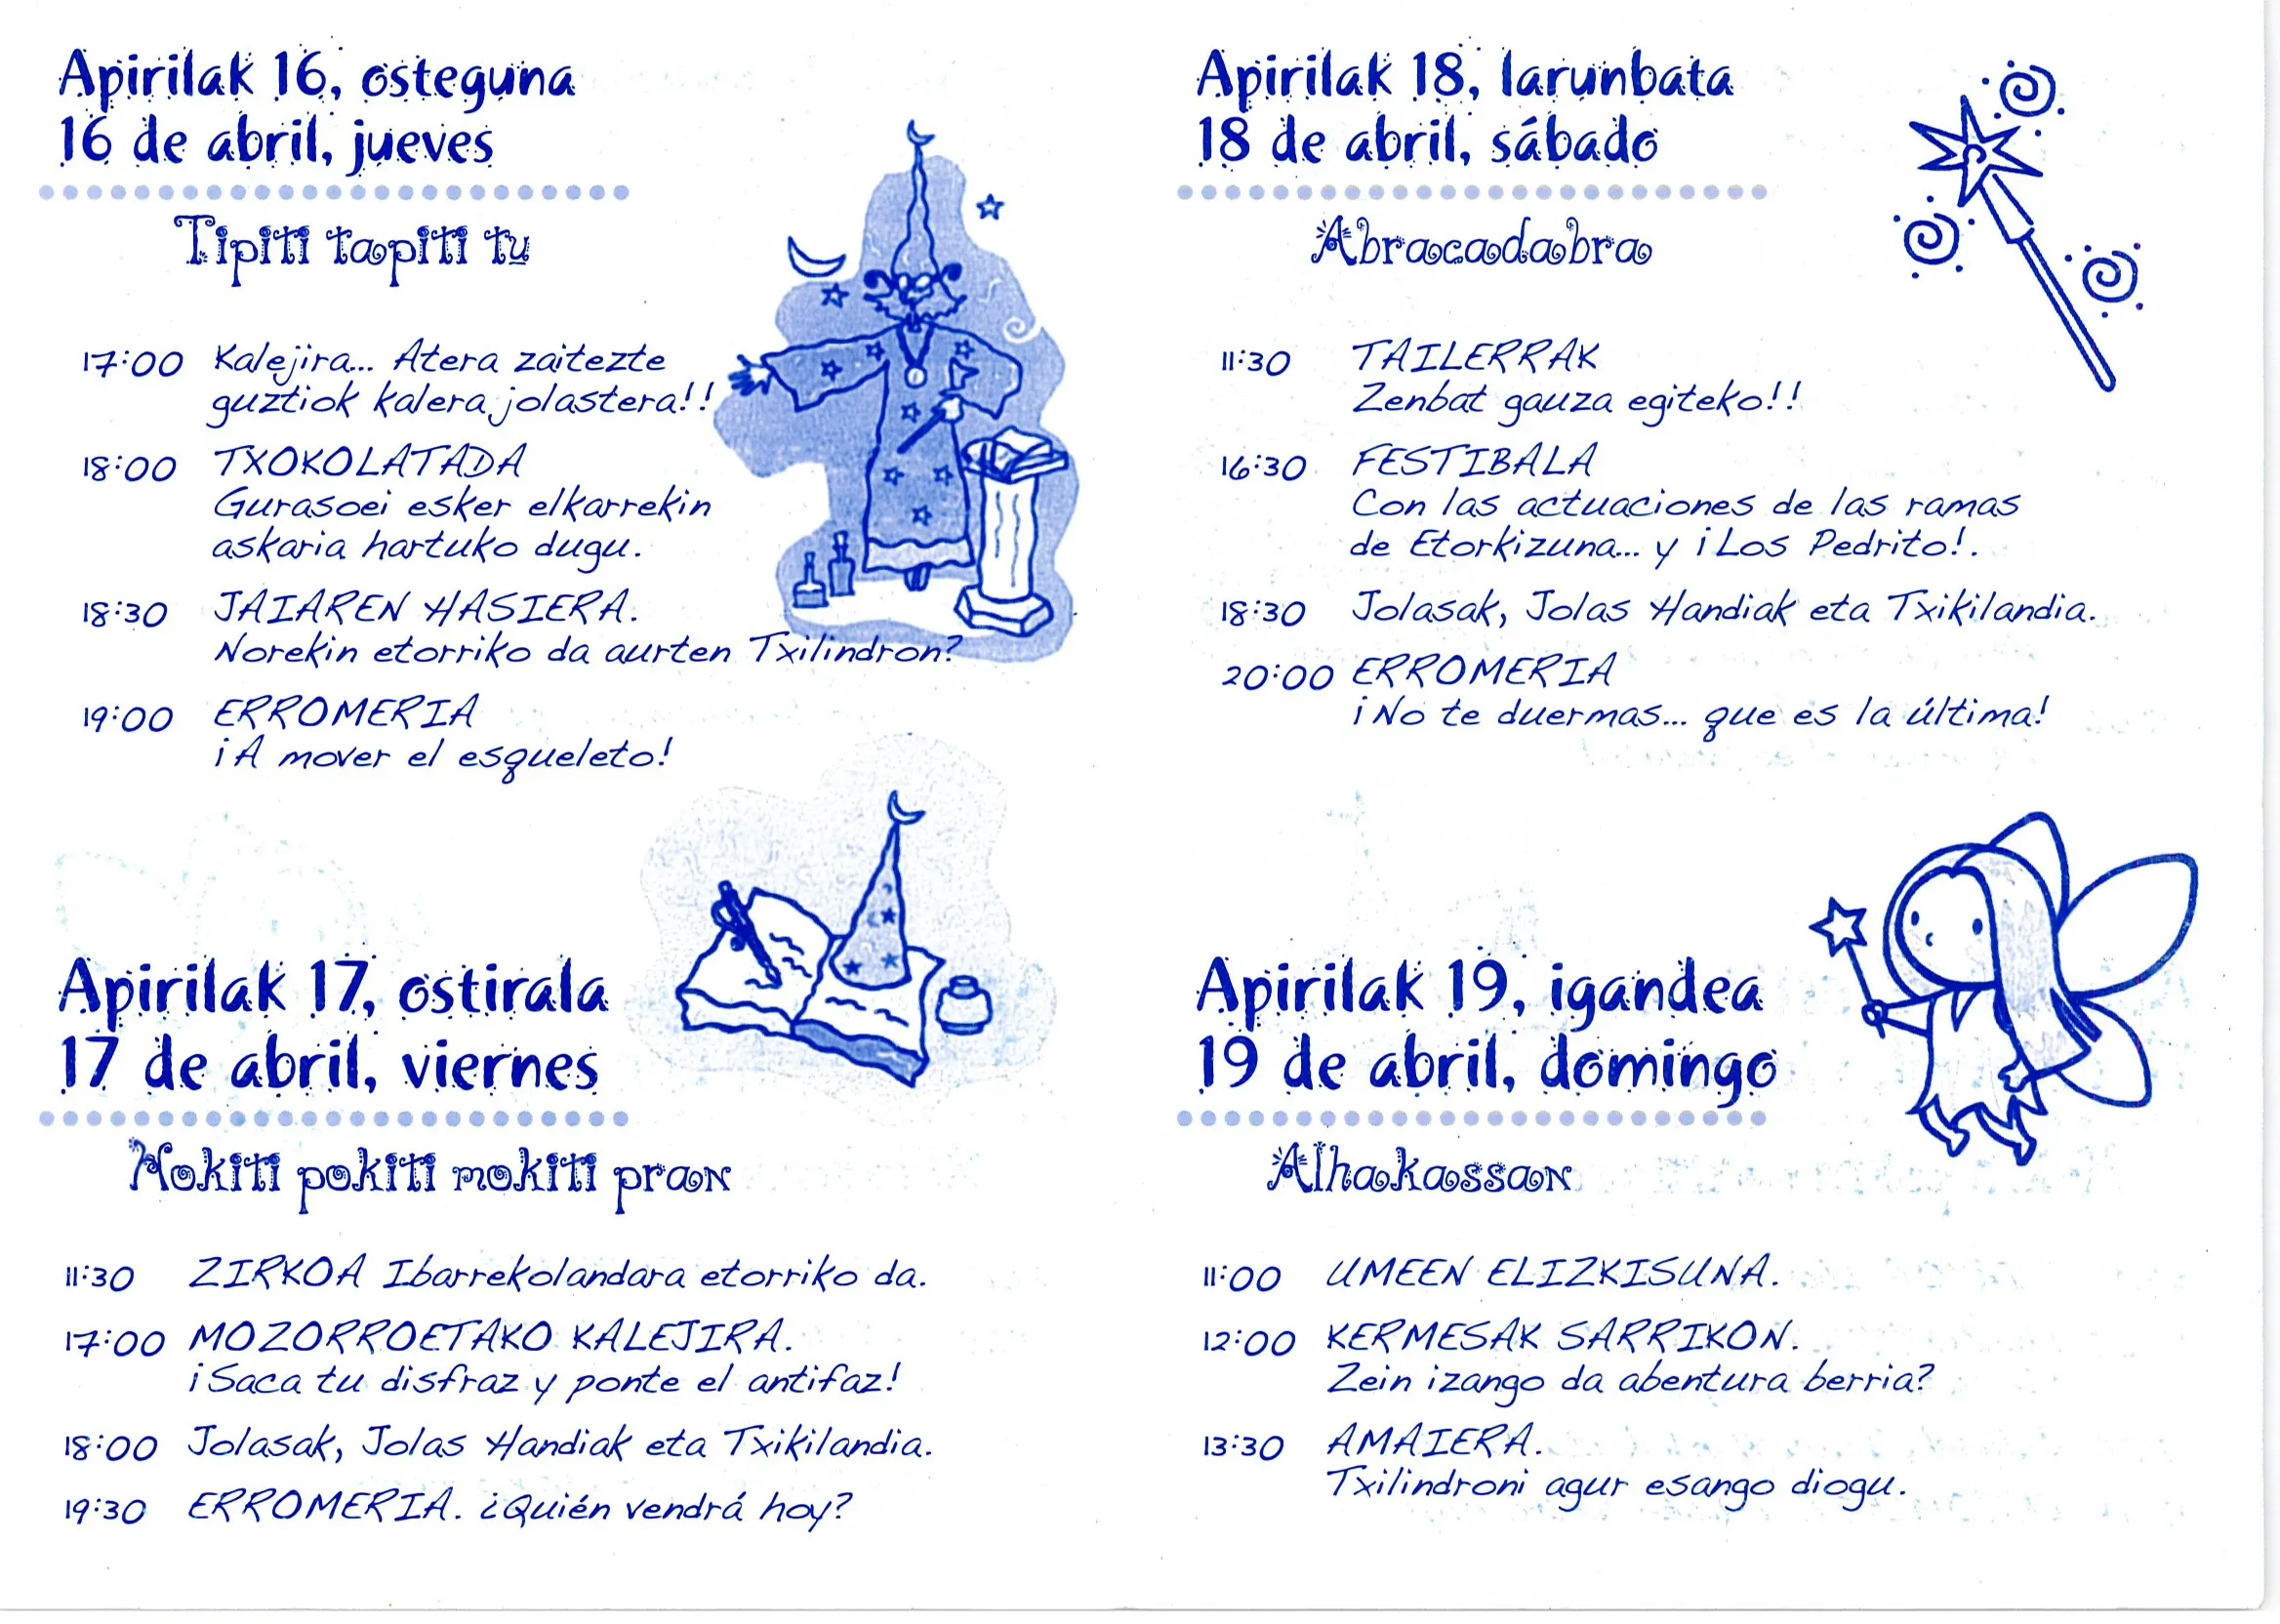 Apirilak 16, osteguna
16 de abril, jueves
Tipiti tapiti tu
17:00 Kalejira... Atera zaitezte
guztiok kalera jolastera!!
18:00 TXOKOLATADA
Gurasoei esker elkarrekin
askaria hartuko dugu.
18:30 JAIAREN HASIERA.
Norekin etorriko da aurten Txilindron?
19:00 ERROMERIA
¡A mover el esqueleto!
Apirilak 17, ostirala
17 de abril, viernes
Hokiti pokiti mokiti pran
11:30 ZIRKOA Ibarrekolandara etorriko da.
17:00 MOZORROETAKO KALEJIRA.
¡Saca tu disfraz y ponte el antifaz!
18:00 Jolasak, Jolas Handiak eta Txikilandia.
19:30 ERROMERIA. ¿Quién vendrá hoy?
Apirilak 18, larunbata
18 de abril, sábado
Abracadabra
11:30 TAILERRAK
Zenbat gauza egiteko!!
16:30 FESTIBALA
Con las actuaciones de las ramas
de Etorkizuna... y ¡Los Pedrito!.
18:30 Jolasak, Jolas Handiak eta Txikilandia.
20:00 ERROMERIA
¡No te duermas... que es la última!
Apirilak 19, igandea
19 de abril, domingo
Alhakassan
11:00 UMEEN ELIZKISUNA.
12:00 KERMESAK SARRIKON.
Zein izango da abentura berria?
13:30 AMAIERA.
Txilindroni agur esango diogu.